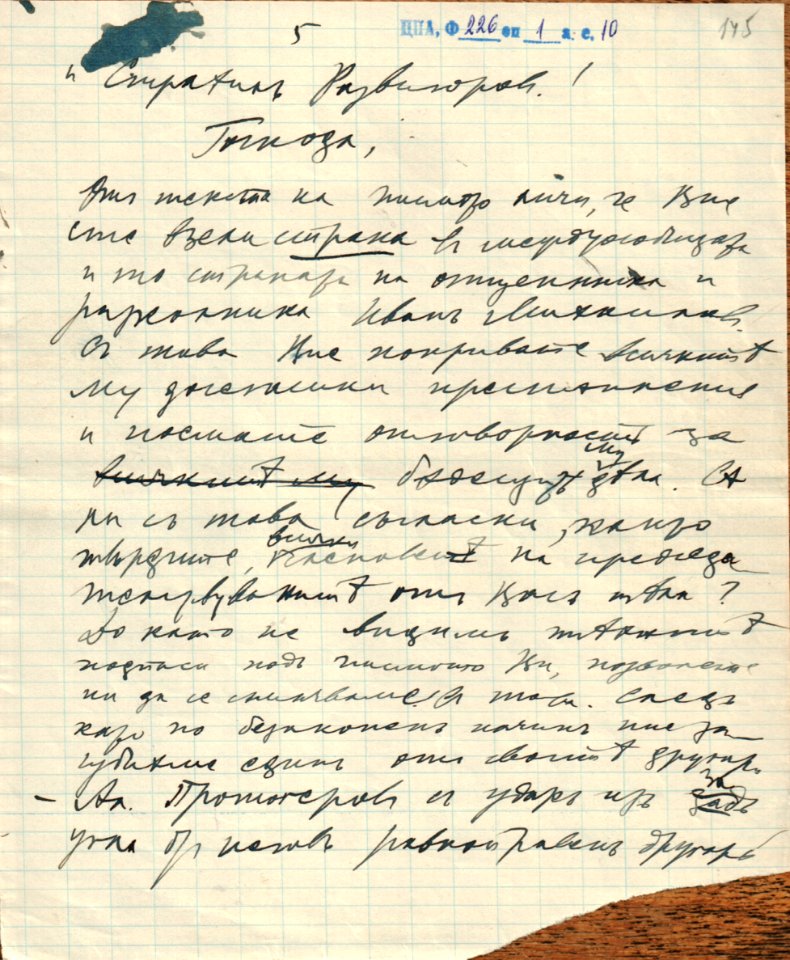 5
ЦПА, Ф 226 оп 1 а. е. 10
145
" Стратилъ Развигоровъ!
Господа,
Отъ текста на писмото личи, че Вие
сте взели страна въ междуособицата
и то страната на отцепника и
Иванъ Михайловъ.
Съ това Вие покривате всичкитѣ
му досегашни престѫпления
и поемате отговорность за
всичкитѣ му бѫдещитѣ му дѣла. Сѫ
ли съ това съгласни, както
твърдите, всички членоветѣ на
отъ Васъ тѣла?
Докато не видимъ тѣхнитѣ
подписи подъ писмото Ви, позволете
ни да се съмняваме въ това. Следъ
като по безаконенъ начинъ ние за-
губихме единъ отъ своитѣ другари
- Ал. Протогеровъ съ ударъ изъ задъ
угла отъ неговъ равноправенъ другарь